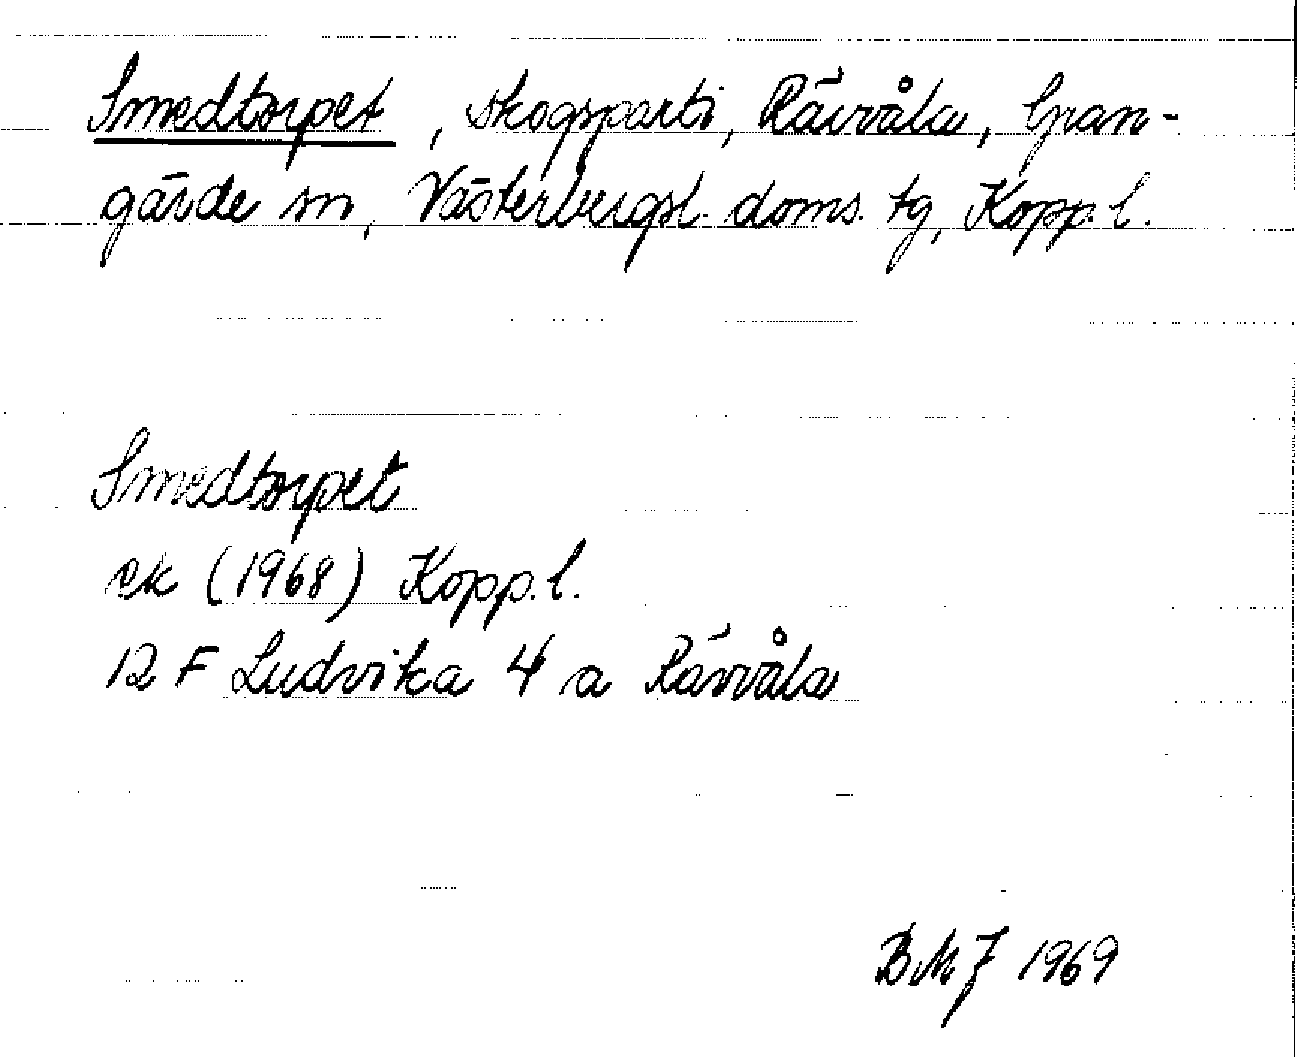 Smedtorpet, skogsparti, Rävvåla, Gran-
gärde sn, Västerbergsl. doms. tg, Kopp. l.
Smedtorpet
ek (1968) Kopp. l.
12 F Ludvika 4 a Rävvåla
BMJ 1969